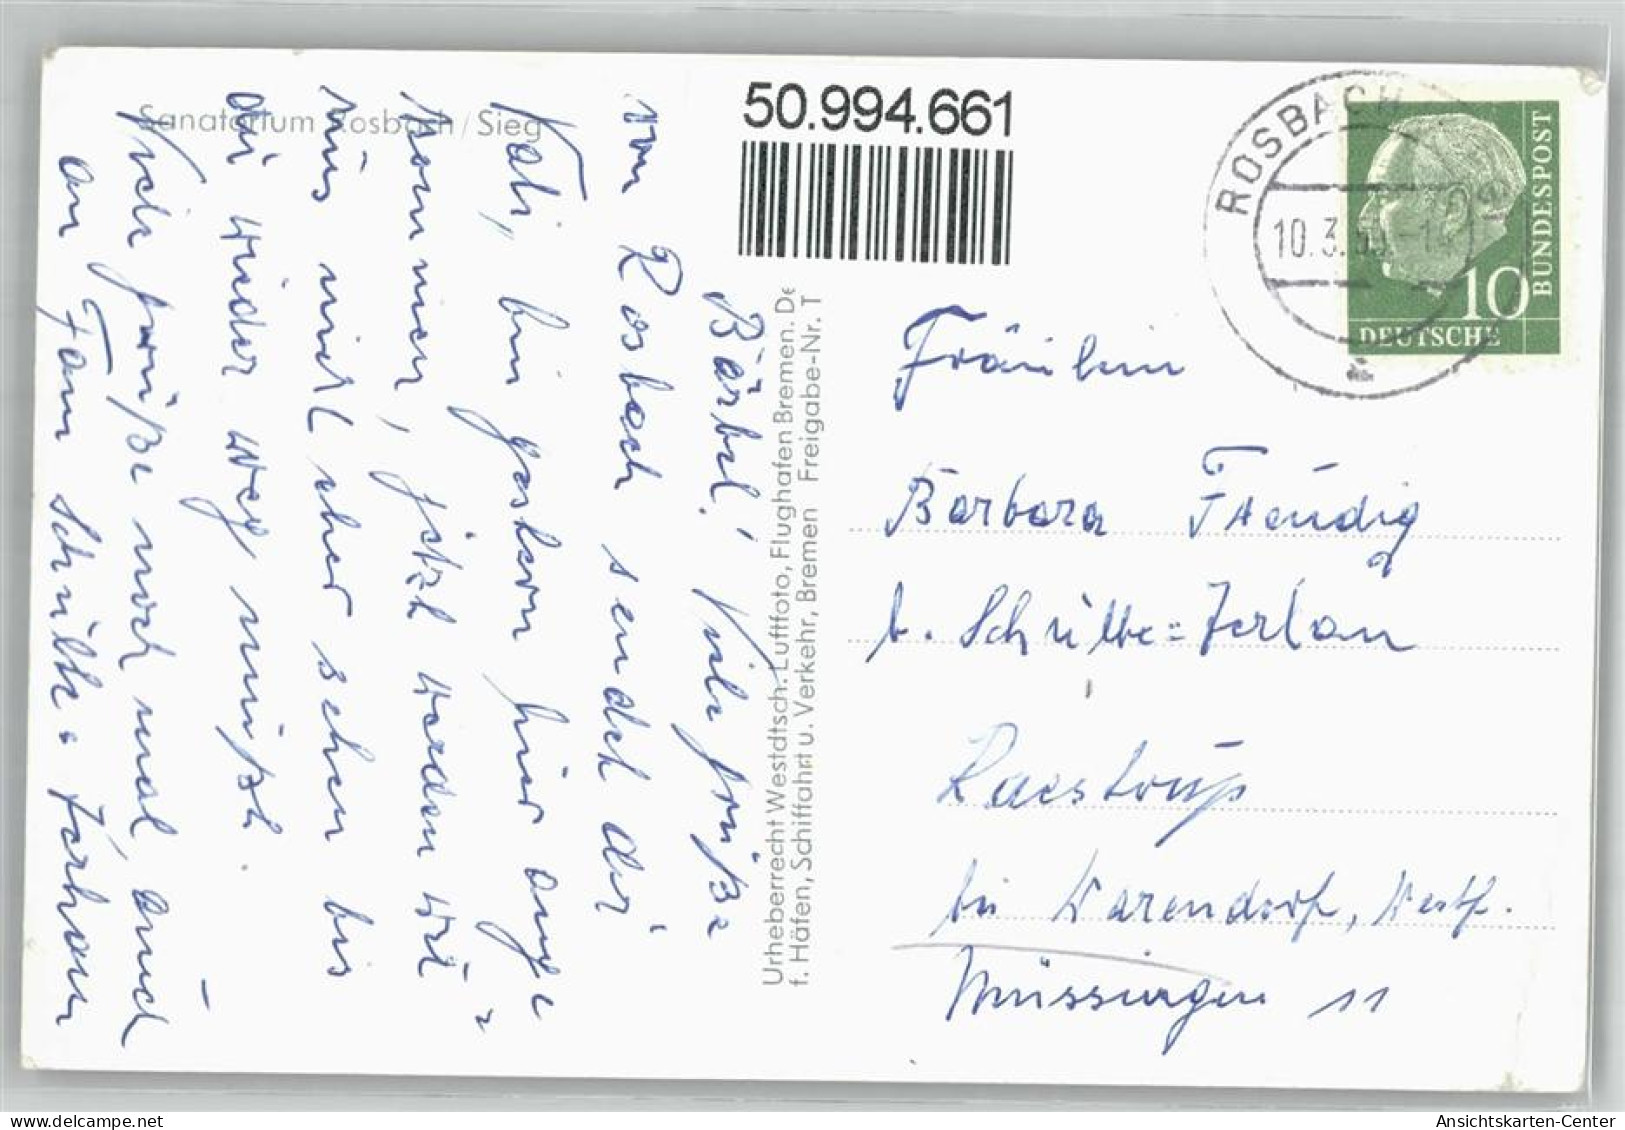 Sanatorium Rosbach/Sieg
50.994.661
ROSBACH
10.3.
DEUTSCHE
BUNDESPOST
10
Bärbel! Viele Grüße
von Rosbach sendet dir
Kati, bin gestern hier ange
kommen, jetzt werden wir
uns nicht eher sehen bis
du wieder weg mußt.
Viele Grüße noch mal, auch
an Fam Schulte-Zerhau
Urheberrecht Westdtsch. Luftfoto, Flughafen Bremen. De
f. Häfen, Schiffahrt u. Verkehr, Bremen Freigabe-Nr. T
Fräulein
Barbara Freudig
b. Schulte=
Raestrup
bei Warendorf, Westf.
Müssingen 11
Ansichtskarten-Center